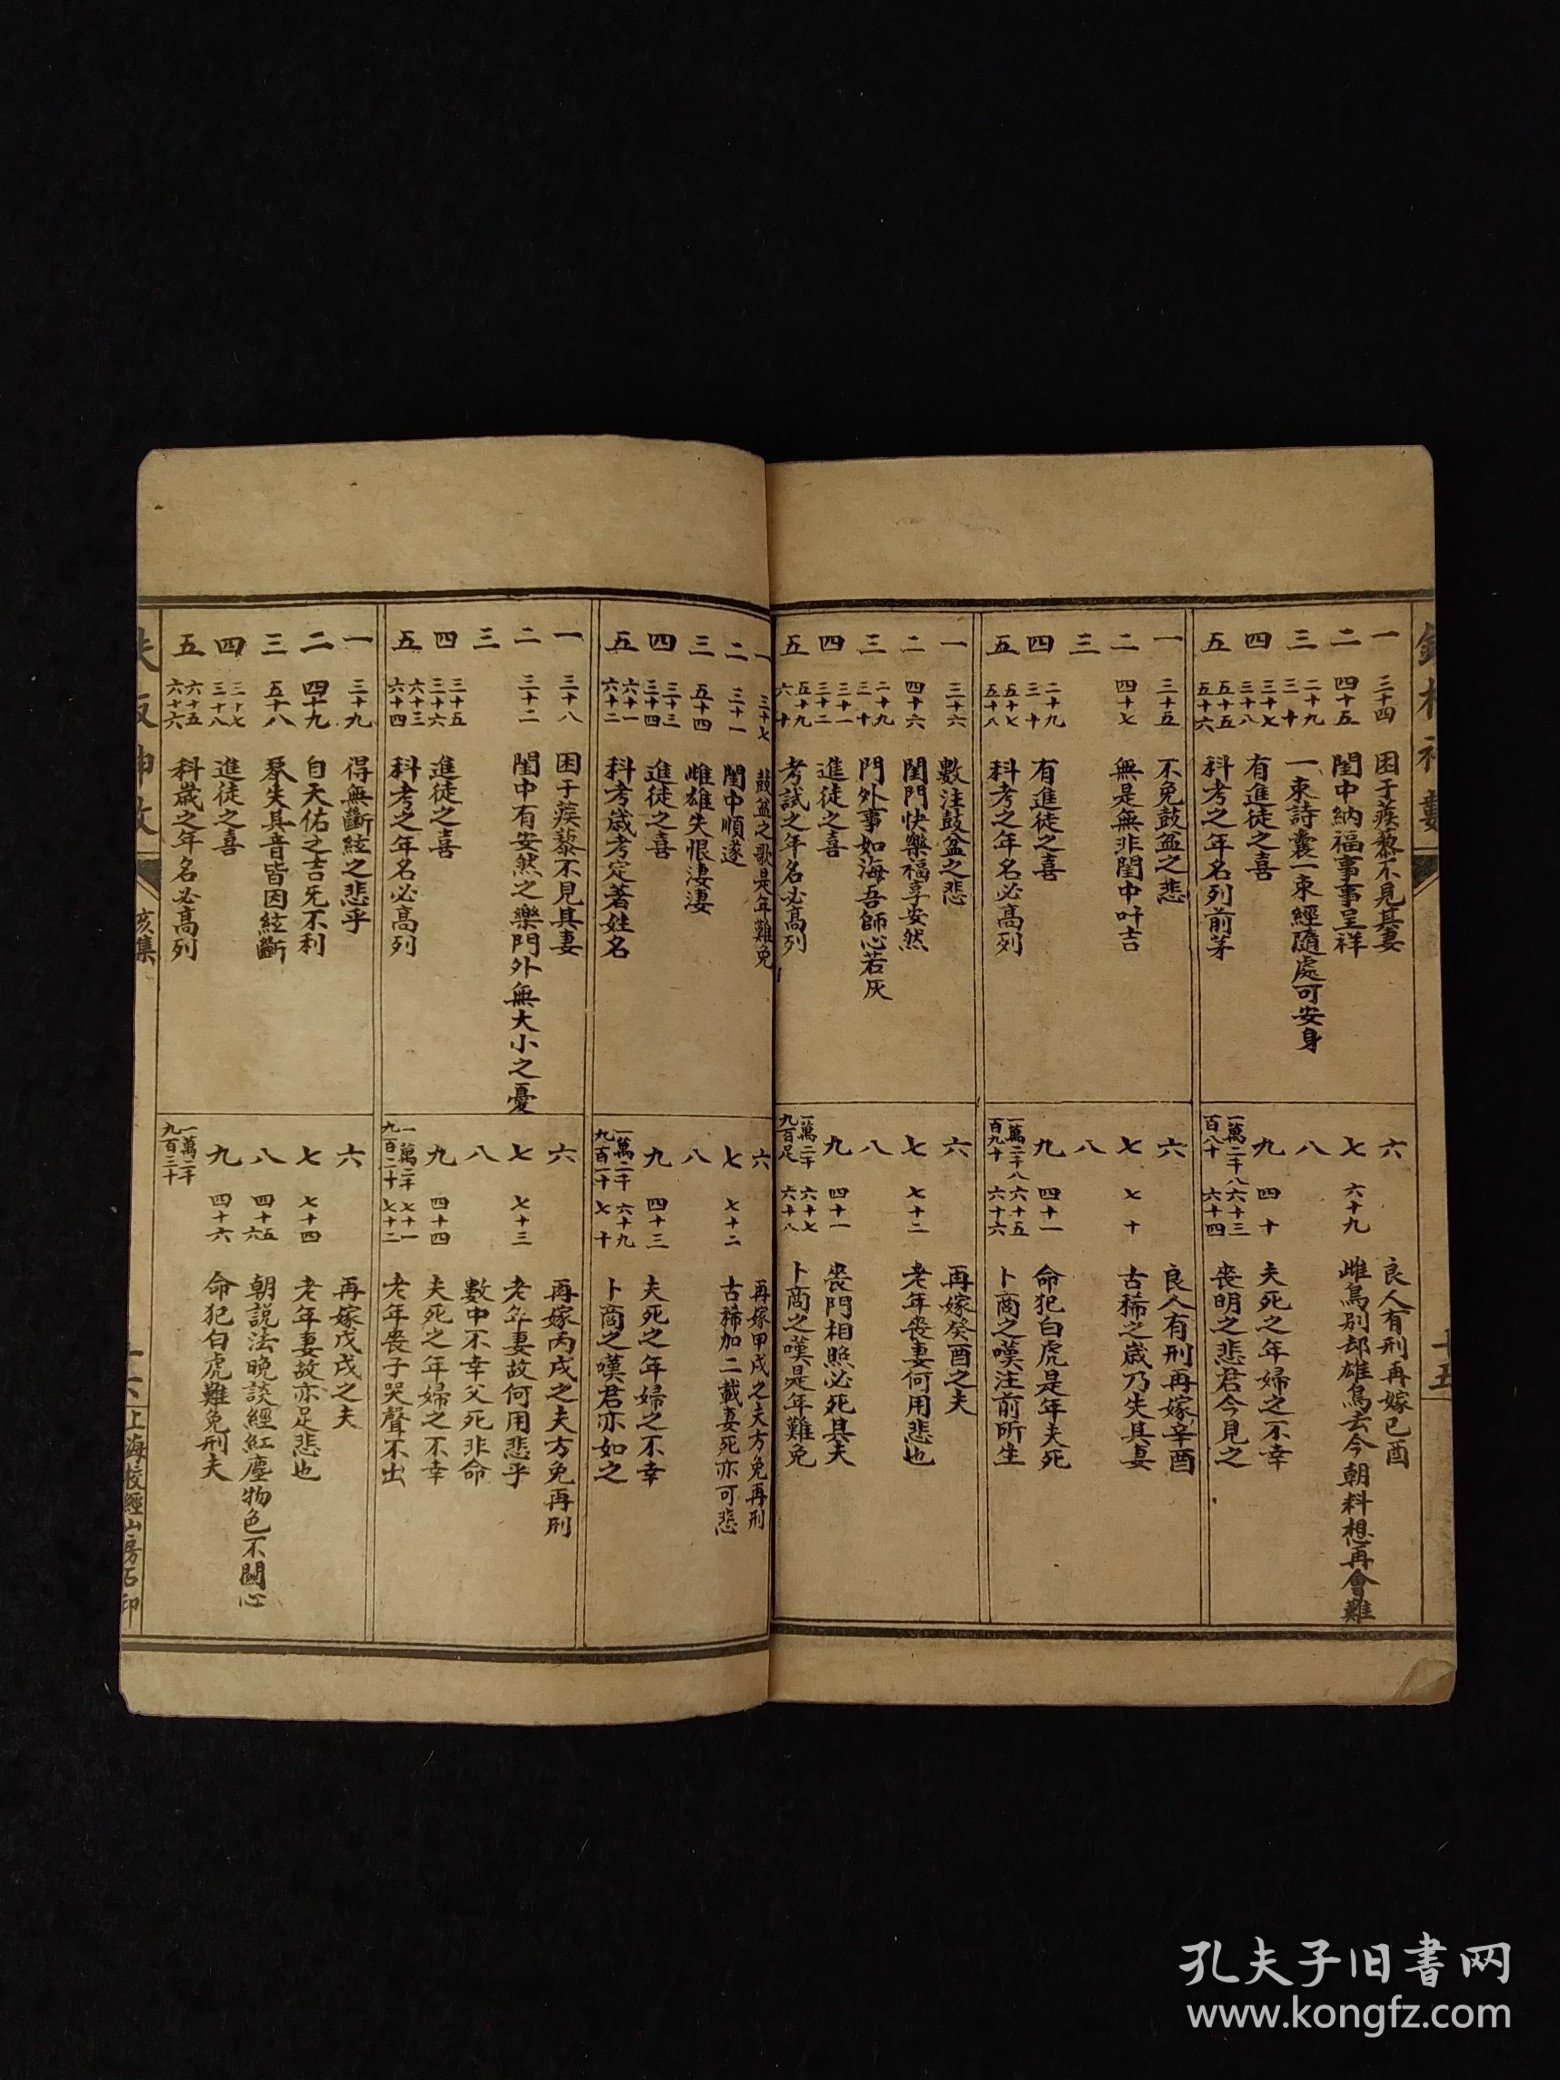 一 三十四 困于蒺藜不見其妻
二 四十五 閨中納福事事呈祥
三 二十九 三十 一束詩囊一束經隨處可安身
四 三十七 三十八 有進徒之喜
五 五十五 五十六 科考之年名列前茅
六 良人有刑再嫁已酉
七 六十九 雌鳥別却雄鳥去今朝料想再會難
八
九 四十 夫死之年婦之不幸
一萬二千八百八十 六十三 六十四 喪明之悲君今見之
一 三十五 不免鼓盆之悲
二 四十七 無是無非閨中叶吉
三
四 二十九 三十 有進徒之喜
五 五十七 五十八 科考之年名必高列
六 良人有刑再嫁辛酉
七 七十 古稀之歲乃失其妻
八
九 四十一 命犯白虎是年夫死
一萬二千八百九十 六十五 六十六 卜商之嘆注前所生
一 三十六 數注鼓盆之悲
二 四十六 閨門快樂福享安然
三 二十九 三十 門外事如海吾師心若灰
四 三十一 三十二 進徒之喜
五 五十九 六十 考試之年名必高列
六 再嫁癸酉之夫
七 七十二 老年喪妻何用悲也
八
九 四十一 喪門相照必死其夫
一萬二千九百足 六十七 六十八 卜商之嘆是年難免
一 三十七 鼓盆之歌是年難免
二 三十一 閨中順遂
三 五十四 雌雄失恨淒淒
四 三十三 三十四 進徒之喜
五 六十一 六十二 科考歲考定著姓名
六 再嫁甲戌之夫方免再刑
七 七十二 古稀加二載妻死亦可悲
八
九 四十三 夫死之年婦之不幸
一萬二千九百一十 六十九 七十 卜商之嘆君亦如之
一 三十八 困于蒺藜不見其妻
二 三十二 閨中有安然之樂門外無大小之憂
三
四 三十五 三十六 進徒之喜
五 六十三 六十四 科考之年名必高列
六 再嫁丙戌之夫方免再刑
七 七十三 老年妻故何用悲乎
八 數中不幸父死非命
九 四十四 夫死之年婦之不幸
一萬二千九百二十 七十一 七十二 老年喪子哭聲不出
一 三十九 得無斷絃之悲乎
二 四十九 自天佑之吉旡不利
三 五十八 琴失其音皆因絃斷
四 三十七 三十八 進徒之喜
五 六十五 六十六 科歲之年名必高列
六 再嫁戊戌之夫
七 七十四 老年妻故亦足悲也
八 四十五 四十六 朝説法晚談經紅塵物色不關心
九 四十六 命犯白虎難免刑夫
一萬二千九百三十
亥集
十六
上海校經山房石印
孔夫子旧书网
www.kongfz.com